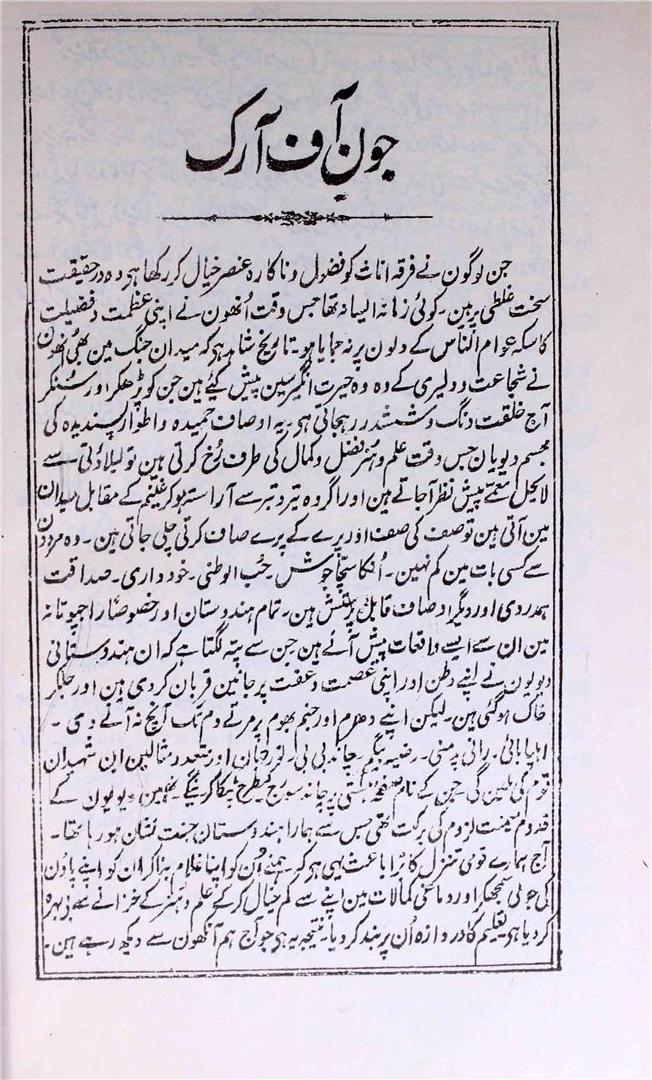 جون آف آرک
جن لوگون نے فرقہ اناث کو فضول و ناکارہ عنصر خیال کر رکھا ہو وہ در حقیقت
سخت غلطی پر ہین۔ کوئی زمانہ ایسا نہ تھا جس وقت اُنھون نے اپنی عظمت و فضیلت
کا سکہ عوام الناس کے دلون پر نہ جمایا ہو۔ تاریخ شاہد ہی کہ میدان جنگ مین بھی اُنھون
نے شجاعت و دلیری کے وہ وہ حیرت انگیز سین پیش کیئے ہین جن کو پڑھکر اور سُنکر
آج خلقت دنگ و ششدر رہجاتی ہی۔ یہ اوصاف حمیدہ و اطوار پسندیدہ کی
مجسم دیویان جس وقت علم و ہنر فضل و کمال کی طرف رُخ کرتی ہین تو لیلاوتی سے
لاینحل معمے پیش نظر آجاتے ہین اور اگر وہ تیر و تبر سے آراستہ ہو کر غنیم کے مقابل میدان
مین آتی ہین تو صف کی صف اور پرے کے پرے صاف کرتی چلی جاتی ہین۔ وہ مردون
سے کسی بات مین کم نہین۔ اُنکا سچا جوش۔ حُب الوطنی۔ خود داری۔ صداقت
ہمدردی اور دیگر اوصاف قابل پرستش ہین۔ تمام ہندوستان اور خصوصاً راجپوتانہ
مین ان سے ایسے واقعات پیش آئے ہین جن سے پتہ لگتا ہے کہ ان ہندوستانی
دیویون نے اپنے وطن اور اپنی عصمت و عفت پر جانین قربان کر دی ہین اور جلکر
خاک ہو گئی ہین۔ لیکن اپنے دھرم اور جنم بھوم پر مرتے دم تک آنچ نہ آنے دی۔
اہلیا بائی۔ رانی پدمنی۔ رضیہ بیگم۔ چاند بی بی۔ نورجہان اور متعدد مثالین ان شہیدان
قوم کی ملین گی۔ جن کے نام صفحہ ہستی پر چاند سورج کیطرح چمکا کرینگے۔ اُنھین دیویون کے
قدوم میمنت لزوم کی برکت تھی جس سے ہمارا ہندوستان جنت نشان ہو رہا تھا۔
آج ہمارے قومی تنزل کا بڑا باعث یہی ہو کہ۔ ہمنے اُن کو اپنا غلام بنا کر ان کو اپنے پاؤن
کی جوتی سمجھکر اور دماغی کمالات مین اپنے سے کم خیال کر کے علم و ہنر کے خزانے سے بے بہرہ
کر دیا ہی۔ تعلیم کا دروازہ اُن پر بند کر دیا۔ نتیجہ یہ ہی جو آج ہم آنکھون سے دیکھ رہے ہین۔